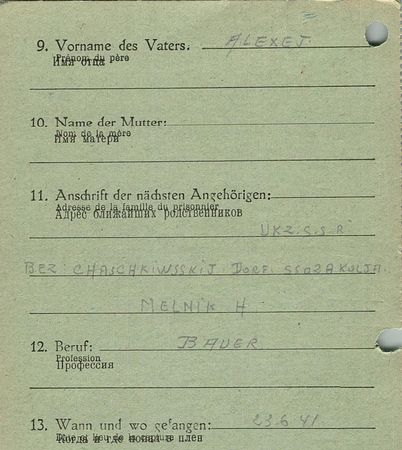 9. Vorname des Vaters: ALEXEJ.
Prénom du père
Имя отца
10. Name der Mutter:
Nom de la mère
Имя матери
11. Anschrift der nächsten Angehörigen:
Adresse de la famille du prisonnier
Адрес ближайших родственников
UKR.S.S.R.
BEZ CHASCHKIWSSKIJ DORF.
MELNIK H
12. Beruf: BAUER
Profession
Профессия
13. Wann und wo gefangen: 23.6.41.
Date et lieu de la capture
Когда и где попал в плен